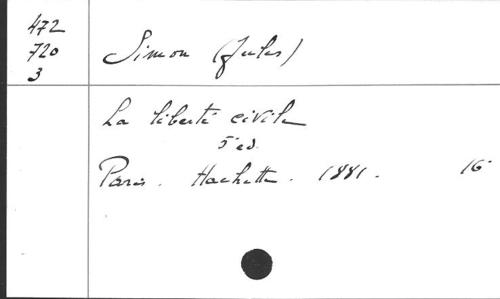 472
720
3
Simon (Jules)
La liberté civile
5 ed.
Paris. Hachette. 1881. 16